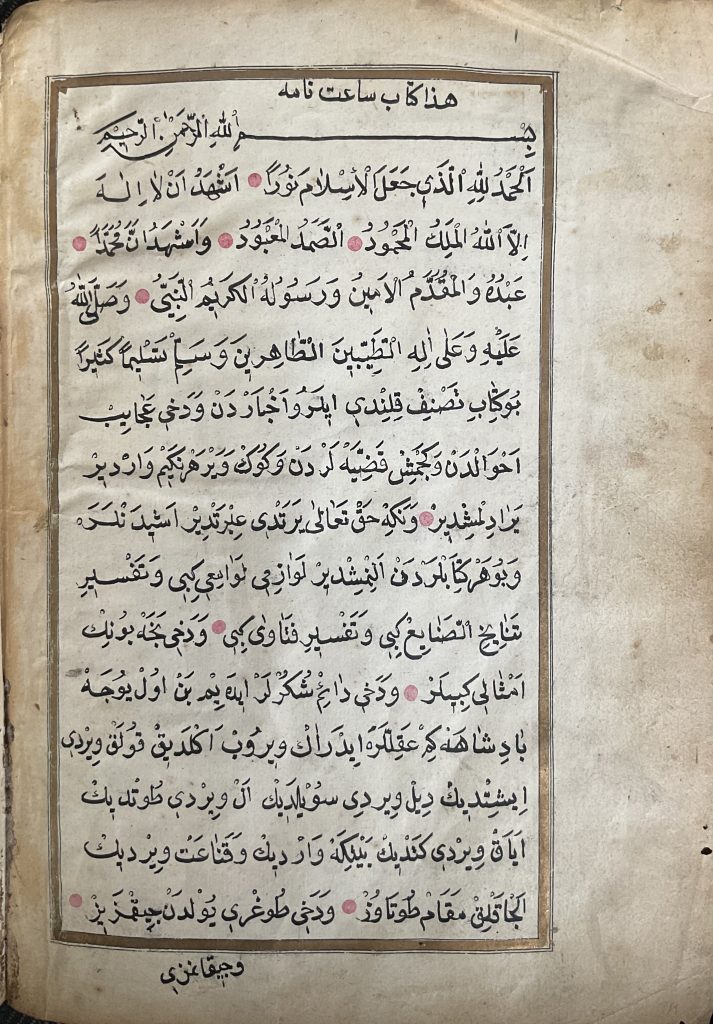 هذا كتاب ساعت نامه
بِسْــــمِ اللهِ الرَّحْمٰنِ الرَّحِيمِ
اَلْحَمْدُ لِلّٰهِ الَّذِي جَعَلَ الْاَسْلَامَ نَوُرًا اَشْهَدُ اَنْ لَا اِلٰهَ
اِلَّا اللهُ الْمَلِكُ الْمَحْمُودُ اَلصَّمَدُ الْمَعْبُودُ وَاَشْهَدُ اَنَّ مُحَمَّدًا
عَبْدُهُ وَالْمُقَدَّمُ الْاَمِينُ وَرَسُولُهُ الْكَرِيمُ النَّبِيُّ وَصَلَّى اللهُ
عَلَيْهِ وَعَلٰى اٰلِهِ الطَّيِّبِينَ الطَّاهِرِينَ وَسَلَّمَ تَسْلِيمًا كَثِيرًا
بُوكِتَابِ تَصْنِفْ قِلِنْدِي ايلرو اَخْبَارْدَنْ وَدَخِى عَجَايِبْ
اَحْوَالْدَنْ وَكَچْمِشْ قَضِيَّه لَرْدَنْ وَكُوكْ وَيَرْ هَرْنَكِيمْ وَارْدِيرْ
يَرَادِلْمِشْدِيرْ وَنَكِه حَقْ تَعَالٰى يَرَتْدِى عِبْرَتْدِيرْ اَشِيدَنْلَرَه
وَبُو هَرْ كِتَابْلَرْدَنْ اَلِنْمِشْدِيرْ لَوَازِمِى لَوَامِعِى كِبِى وَتَفْسِيرِ
نَتَايِجِ الصَّنَايِعْ كِبِى وَتَفْسِيرِ فَتَاوٰى كِبِى وَدَخِى نَجَه بُونِكْ
اَمْثَالِى كِبِيلَرْ وَدَخِى دَائِمْ شُكُرْلَرْ ايدَه يِمْ بَنْ اُولْ يُوجَه
پَادِشَاهَه كِمْ عَقِلْلَرَه اِيدْرَاكْ وِيروُبْ اَكْلَدِيقْ قُولَقْ وِيرْدِى
اِيشِتْدِيكْ دِيلْ وِيرْدِى سُويْلَدِيكْ اَلْ وِيرْدِى طُوتْدِيكْ
اَيَاقْ وِيرْدِى كَتْدِيكْ بَيْتِكَه وَارْدِيكْ وَقَنَاعَتْ وِيرْدِيكْ
اَلْچَاقْلِقْ مَقَامْ طُوتَاوُزْ وَدَخِى طُوغْرِى يُولْدَنْ چِيقْمَزِيزْ
وچيقانمزى